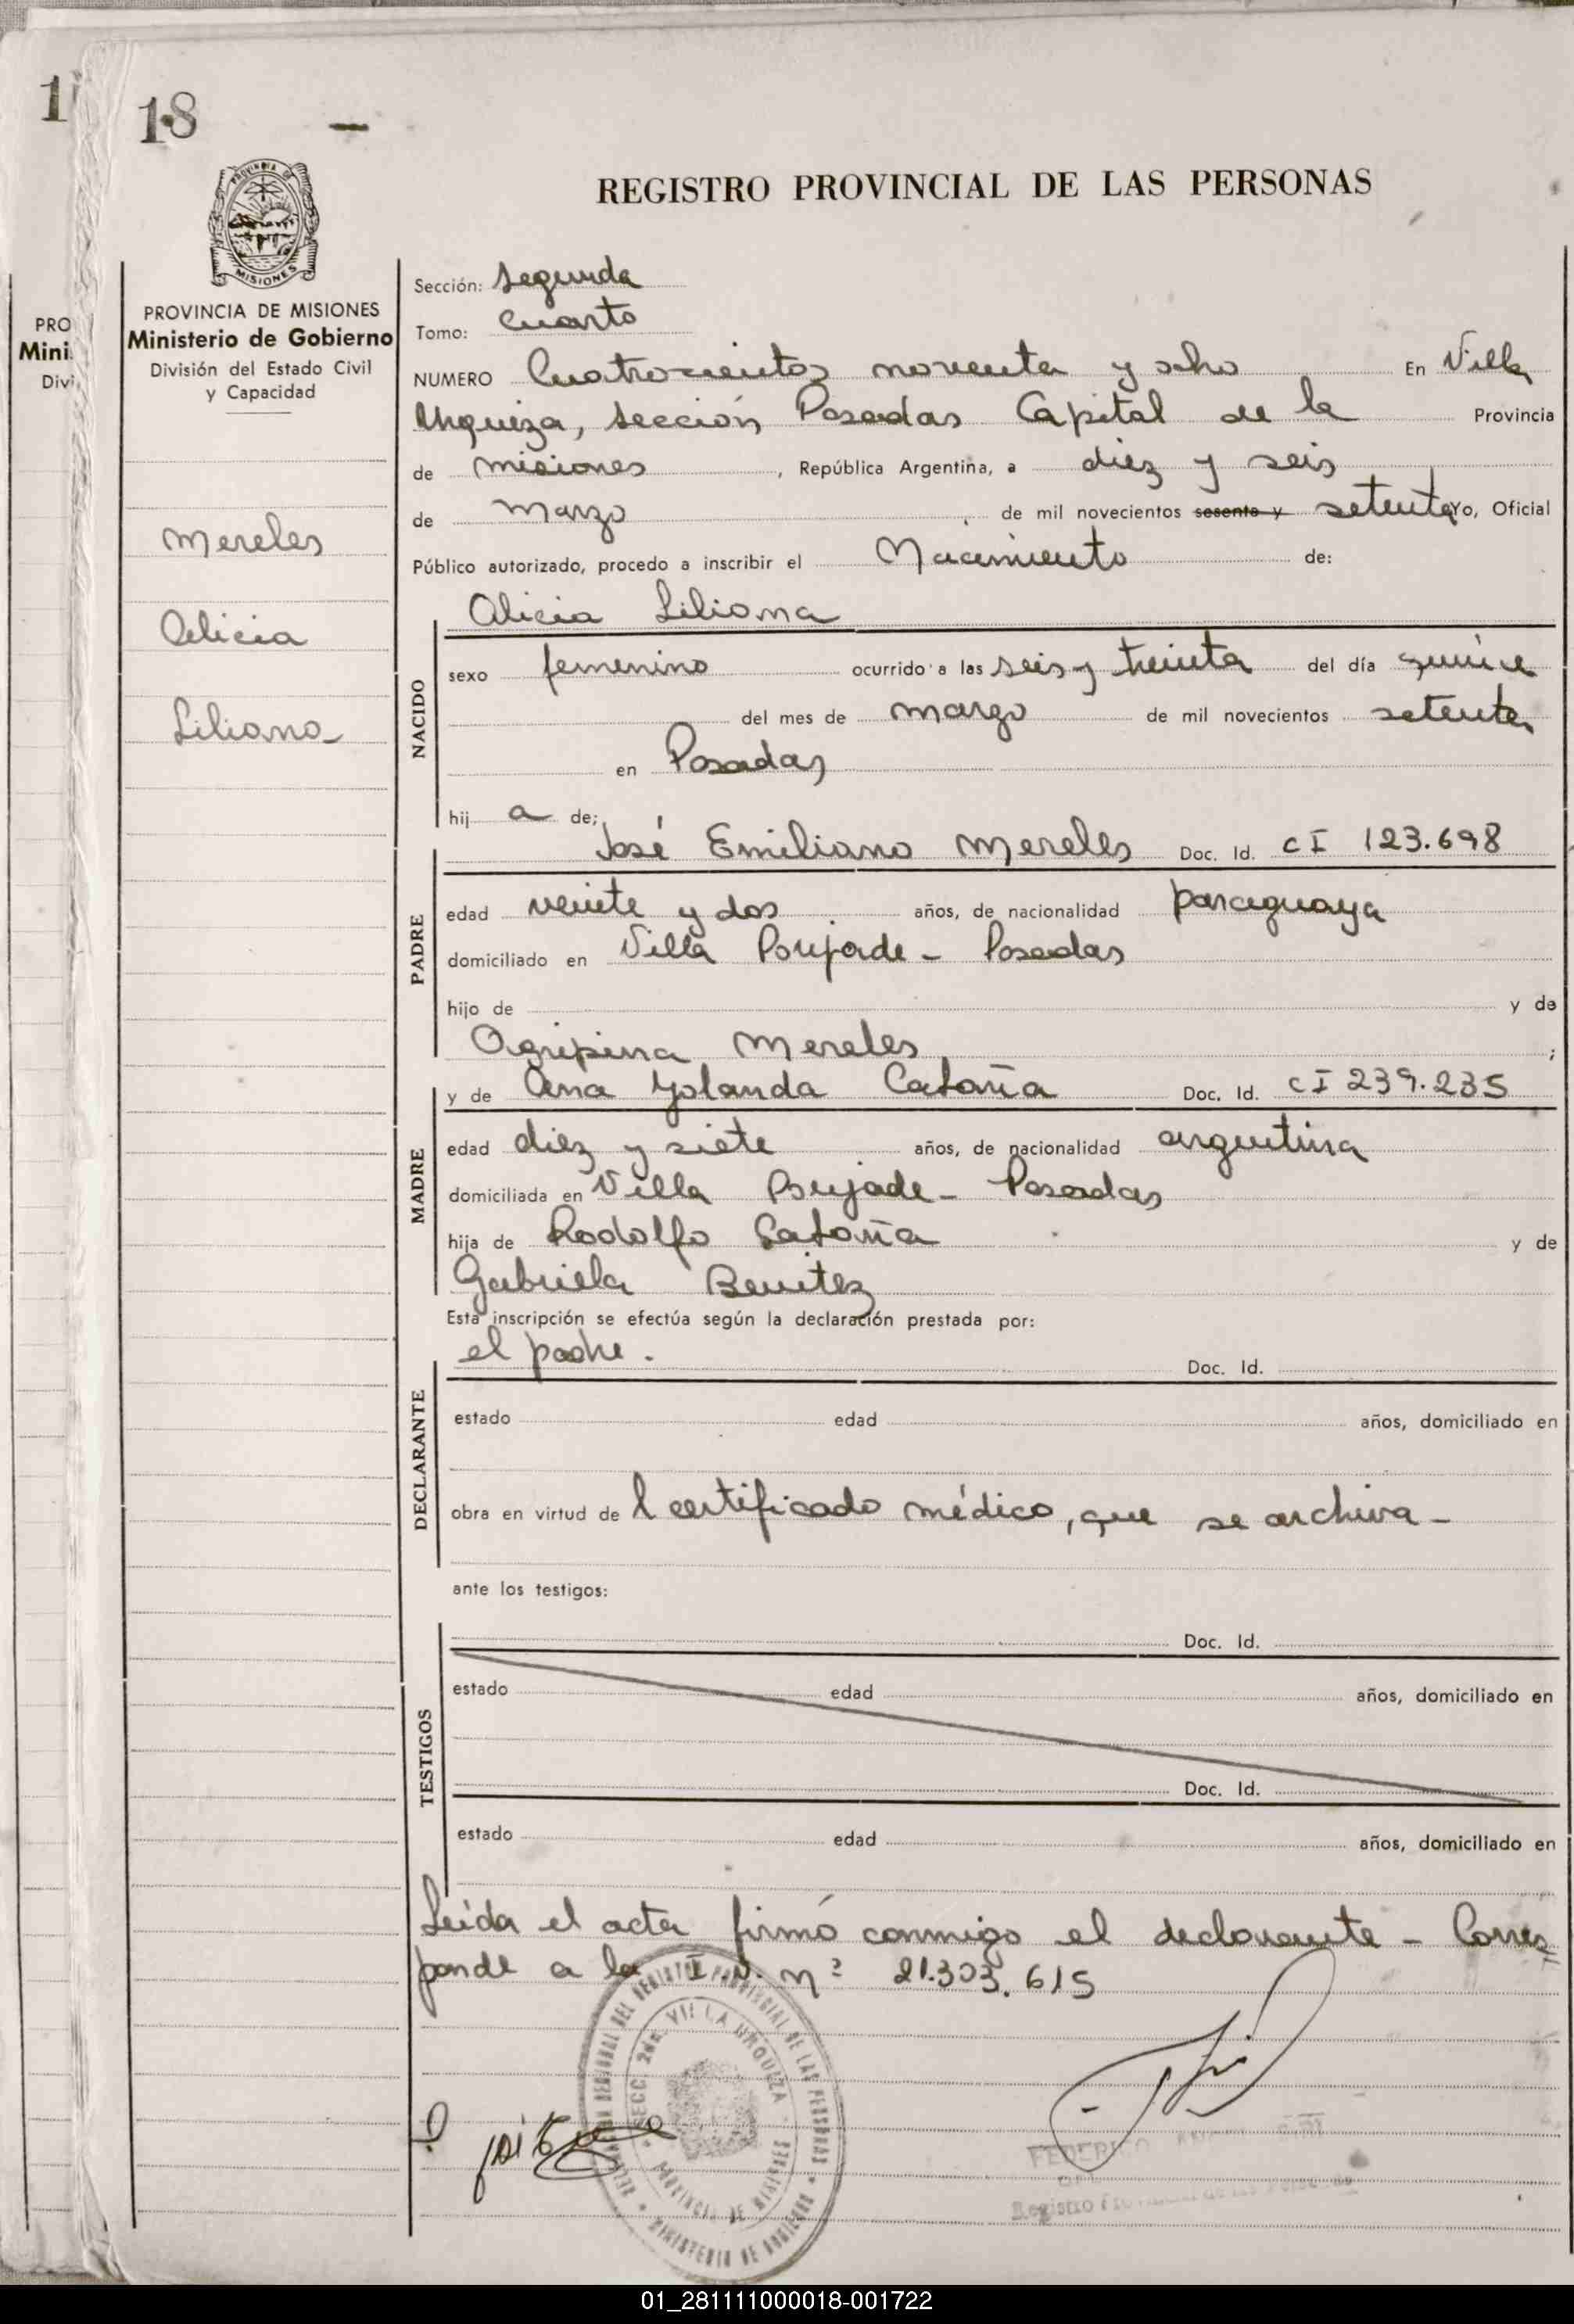 1
18
PROVINCIA DE
MISIONES
REGISTRO PROVINCIAL DE LAS PERSONAS
PRO
Mini.
Divi
PROVINCIA DE MISIONES
Ministerio de Gobierno
División del Estado Civil
y Capacidad
Mereles
Alicia
Liliana
Sección: Segunda
Tomo: Cuarto
NUMERO Cuatrocientos noventa y ocho En Villa
Urquiza, sección Posadas Capital de la Provincia
de Misiones , República Argentina, a diez y seis
de Marzo , de mil novecientos sesenta y setenta Yo, Oficial
Público autorizado, procedo a inscribir el Nacimiento de:
Alicia Liliana
NACIDO
sexo femenino ocurrido a las seis y treinta del día quince
del mes de marzo de mil novecientos setenta
en Posadas
hij a de;
José Emiliano Mereles Doc. Id. CI 123.698
PADRE
edad veinte y dos años, de nacionalidad paraguaya
domiciliado en Villa Poujade - Posadas
hijo de y de
Agripina Mereles ;
y de Ana Yolanda Cataña Doc. Id. CI 239.235
MADRE
edad diez y siete años, de nacionalidad argentina
domiciliada en Villa Poujade - Posadas
hija de Rodolfo Cataña y de
Gabriela Benitez
Esta inscripción se efectúa según la declaración prestada por:
el padre. Doc. Id.
DECLARANTE
estado edad años, domiciliado en
obra en virtud de l certificado médico, que se archiva -
ante los testigos:
Doc. Id.
TESTIGOS
estado edad años, domiciliado en
Doc. Id.
estado edad años, domiciliado en
Leída el acta firmó conmigo el declarante - Corres=
ponde a la I.D. Nº 21.303.615
REGIONAL DEL REGISTRO PROVINCIAL DE LAS PERSONAS
SECC. 2da. VILLA URQUIZA
PROVINCIA DE MISIONES
MINISTERIO DE GOBIERNO
FEDERICO
Registro Provincial de las Personas
01_281111000018-001722